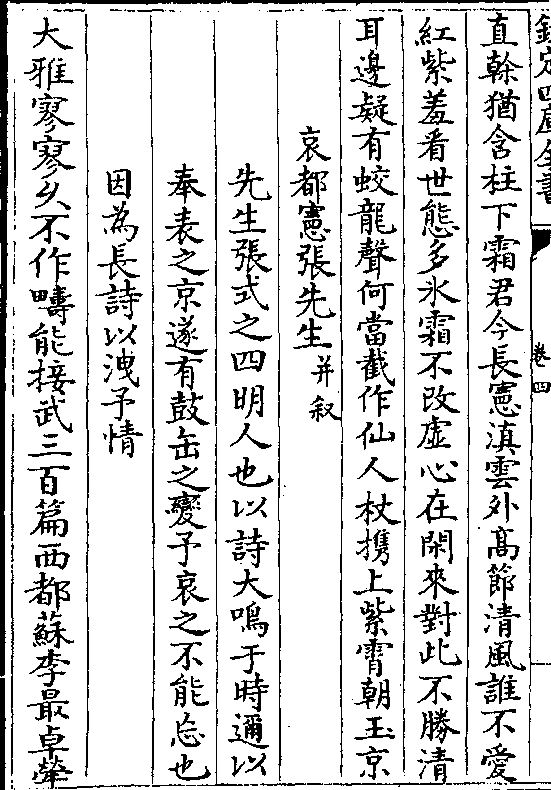 欽定四庫全書
卷四
直榦猶含柱下霜君今長憲滇雲外髙節清風誰不愛
紅紫羞看世態多氷霜不改虚心在閑來對此不勝清
耳邊疑有蛟龍聲何當截作仙人杖攜上紫霄朝玉京
哀都憲張先生并叙
先生張式之四明人也以詩大鳴于時邇以
奉表之京遂有鼓缶之變予哀之不能忘也
因為長詩以洩予情
大雅寥寥乆不作疇能接武三百篇西都蘇李最卓犖